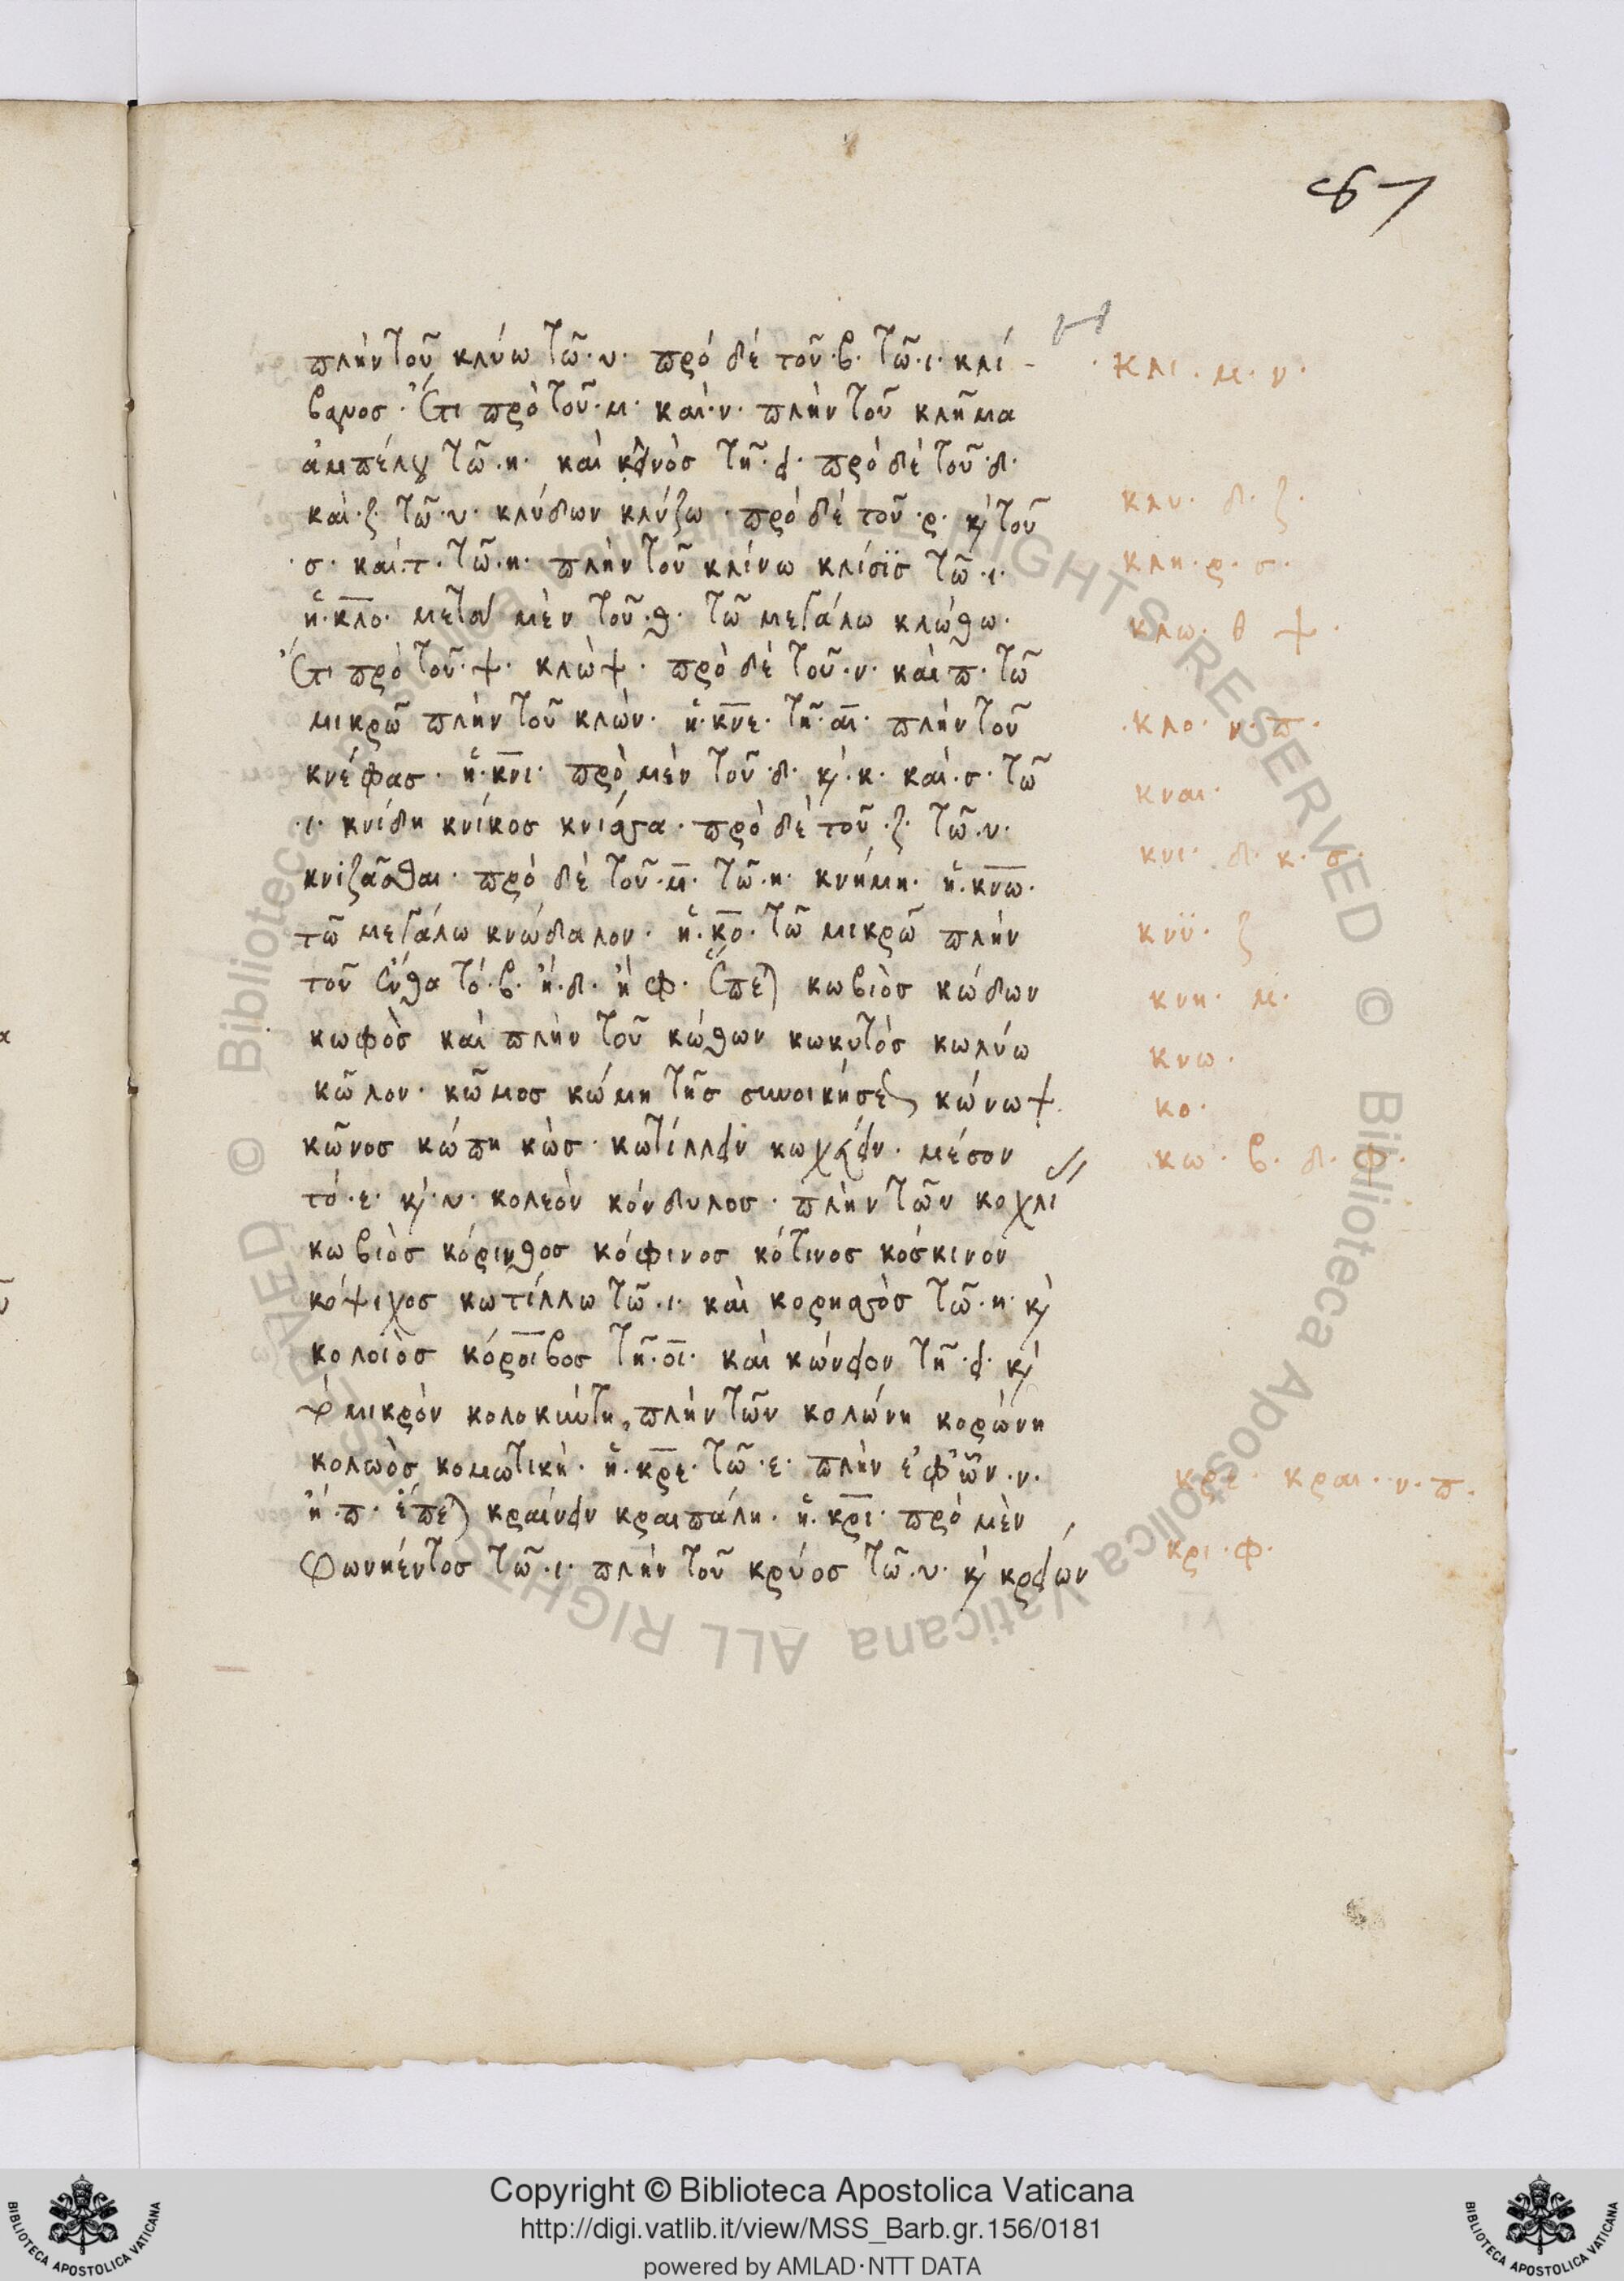 67
πλὴν τοῦ κλύω τῶ·υ· πρὸ δὲ τοῦ·β· τῶ·ι· κλί-
βανοσ· ἔτι πρὸ τοῦ·μ· καὶ·ν· πλὴν τοῦ κλῆμα
ἀμπέλου τῶ·η· καὶ κεινὸσ τῆ·ει· πρὸ δὲ τοῦ·δ·
καὶ·ζ· τῶ·υ· κλύδων κλύζω· πρὸ δὲ τοῦ·ρ· κ τοῦ
·σ· καὶ·τ· τῶ·η· πλὴν τοῦ κλίνω κλίσϊσ τῶ·ι·
ἡ·κλο· μετὰ μὲν τοῦ·θ· τῶ μεγάλω κλώθω·
ἔτι πρὸ τοῦ·ψ· κλὼψ· πρὸ δὲ τοῦ·ν· καὶ π· τῶ
μικρῶ πλὴν τοῦ κλών· ἡ·κνε· τῆ·αι· πλὴν τοῦ
κνέφασ· ἡ·κνι· πρὸ μὲν τοῦ·δ· κ·κ· καὶ·σ· τῶ
·ι· κνίδη κνίκοσ κνίσσα· πρὸ δὲ τοῦ·ζ· τῶ·υ·
κνϊζᾶσθαι· πρὸ δὲ τοῦ·μ· τῶ·η· κνήμη· ἡ·κνω·
τῶ μεγάλω κνώδαλον· ἡ·κο· τῶ μικρῶ πλὴν
τοῦ ἔνθα τό·β· ἢ·δ· ἢ φ· ἕπεται κωβιὸσ κώδων
κωφὸσ καὶ πλὴν τοῦ κώθων κωκυτὸσ κωλύω
κῶλον· κῶμοσ κώμη τῆσ συνοικήσεωσ κώνωψ
κῶνοσ κώπη κὼσ· κωτίλλειν κωχεύειν· μέσον
τό·ε· κ·υ· κολεὸν κόνδυλοσ· πλὴν τῶν κοχλί
κωβιὸσ κόρινθοσ κόφινοσ κότινοσ κόσκινον
κόψιχοσ κωτίλλω τῶ·ι· καὶ κορησσὸσ τῶ·η· κ
κολοιὸσ κόροιβοσ τῆ·οι· καὶ κώνειον τῆ·ει· κ
μικρὸν κολοκύντη, πλὴν τῶν κολώνη κορώνη
κολωὸσ κομωτικὴ· ἡ·κρε· τῶ·ε· πλὴν ἐφ' ὧν·ν·
ἢ·π· ἕπεται κραίνειν κραιπάλη· ἡ·κρι· πρὸ μὲν
φωνήεντοσ τῶ·ι· πλὴν τοῦ κρύοσ τῶ·υ· κ κρειών
·κλι·μ·ν·
κλυ·δ·ζ·
κλη·ρ·σ·
κλω·θ ψ·
·κλο·ν·π·
κναι·
κνι·δ·κ·σ·
κνϋ·ζ
κνη·μ·
κνω·
κο·
κω·β·δ·φ·
κρε·κραι·ν·π·
κρι·φ·
© Biblioteca Apostolica Vaticana ALL RIGHTS RESERVED © Biblioteca Apostolica Vaticana ALL RIGHTS RESERVED
Copyright © Biblioteca Apostolica Vaticana
http://digi.vatlib.it/view/MSS_Barb.gr.156/0181
powered by AMLAD·NTT DATA
BIBLIOTECA APOSTOLICA VATICANA
BIBLIOTECA APOSTOLICA VATICANA